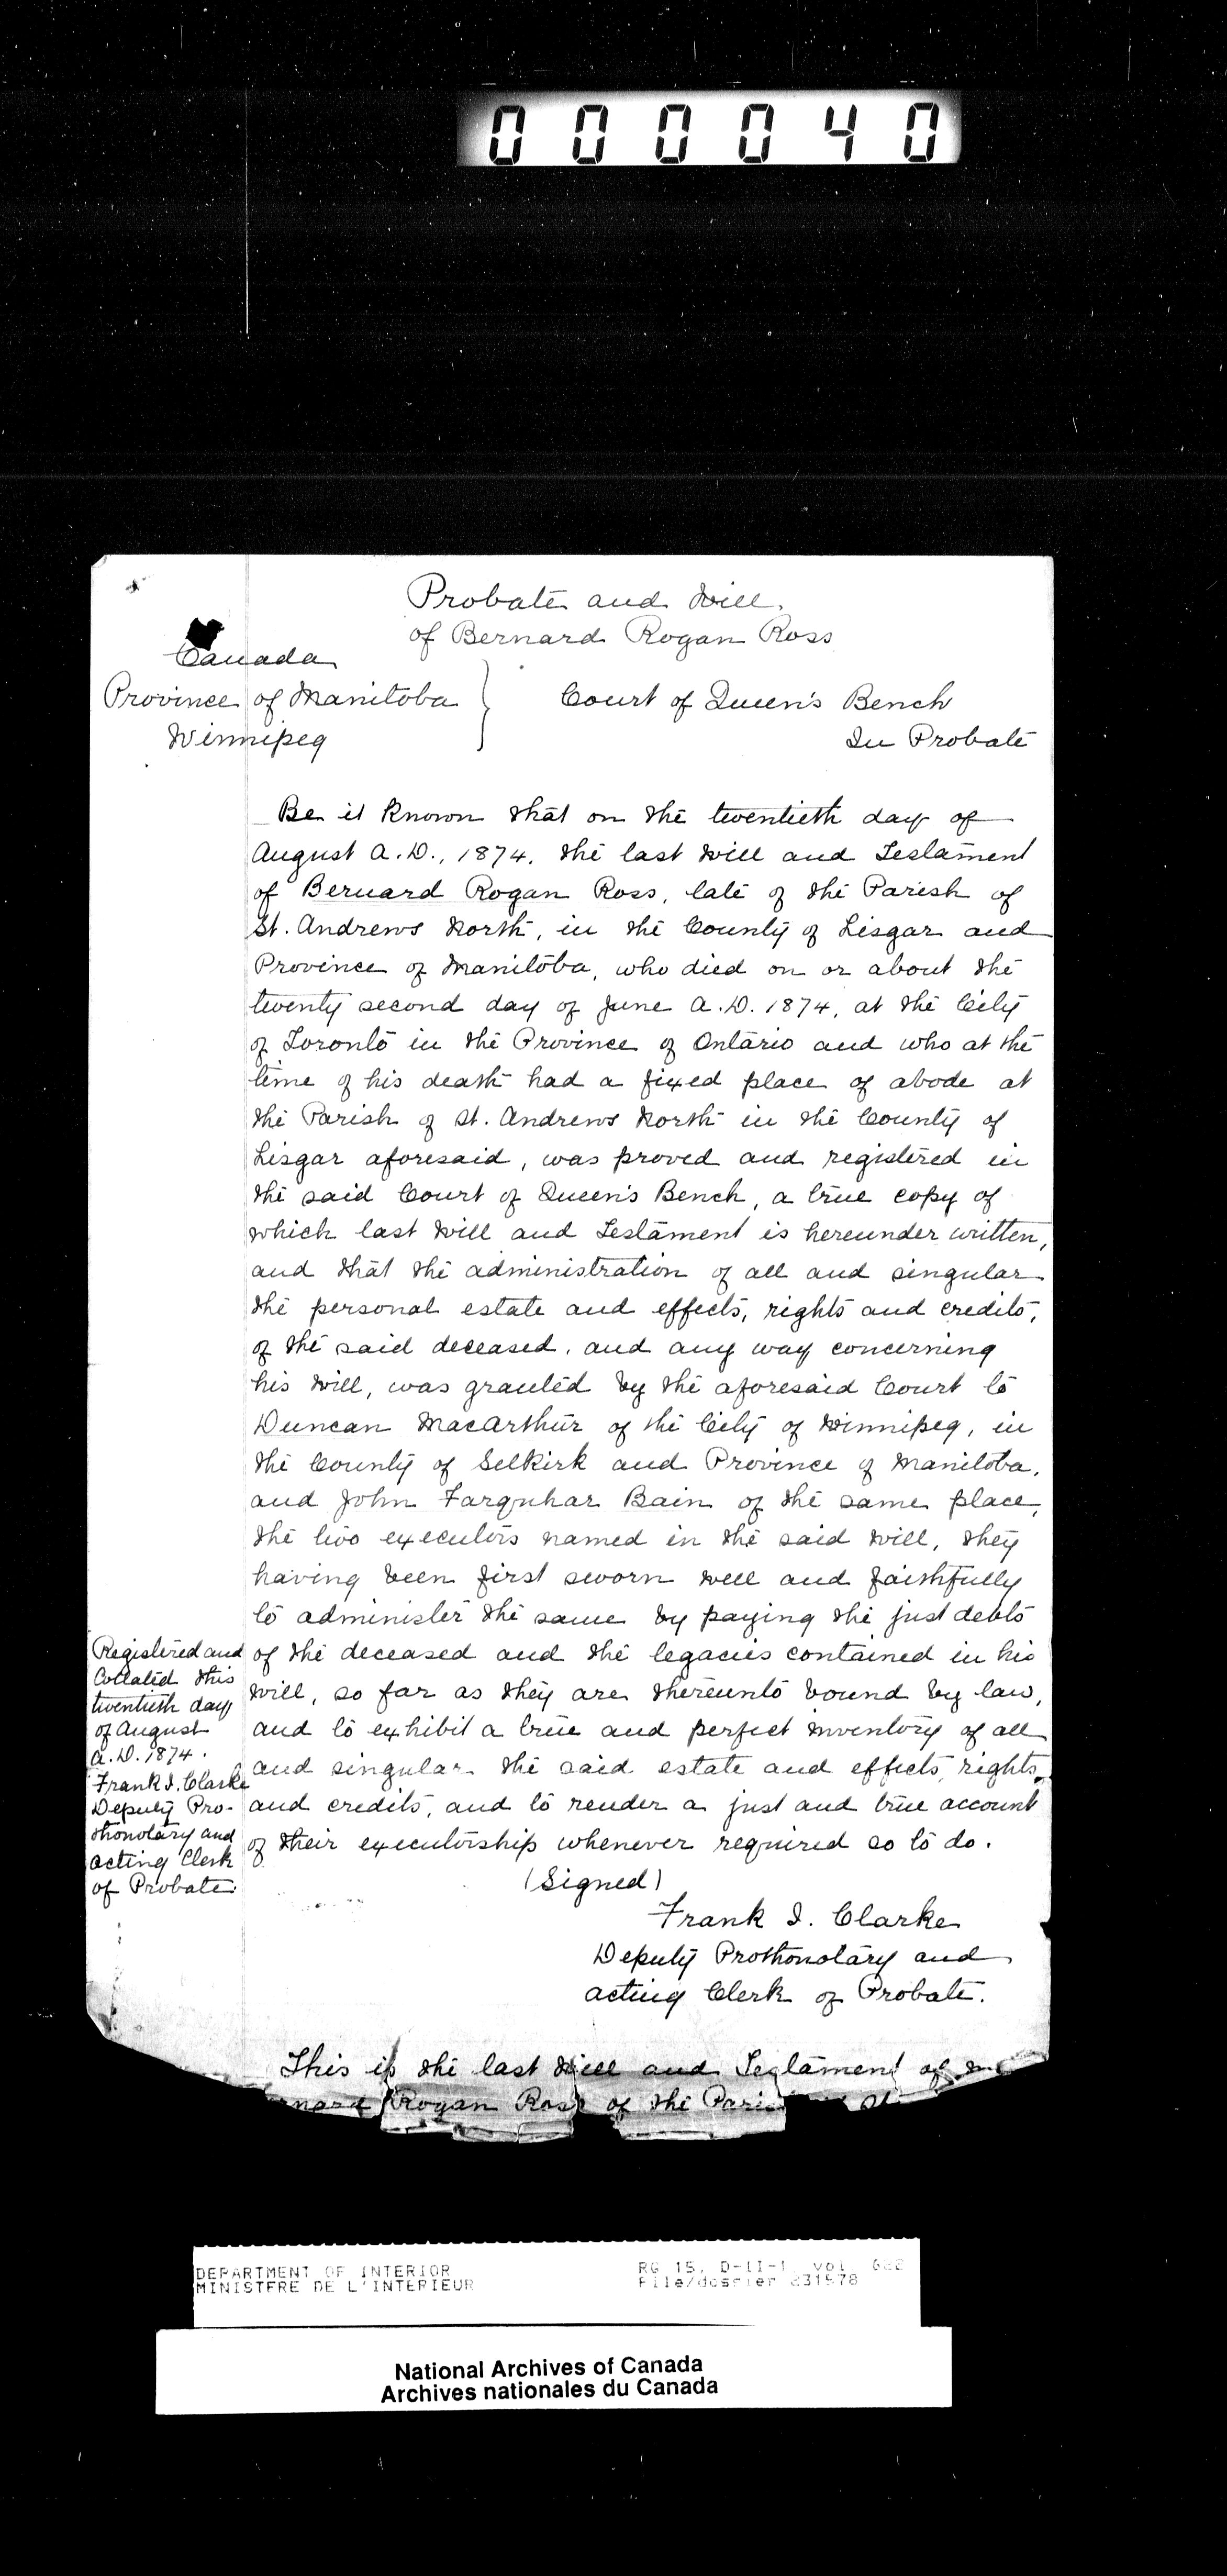 000040
Probate and Will
of Bernard Rogan Ross
Canada
Province of Manitoba
Winnipeg
Court of Queen's Bench
In Probate
Be it known that on the twentieth day of
August A.D., 1874, the last Will and Testament
of Bernard Rogan Ross, late of the Parish of
St. Andrews North, in the County of Lisgar and
Province of Manitoba, who died on or about the
twenty second day of June A.D. 1874, at the City
of Toronto in the Province of Ontario and who at the
time of his death had a fixed place of abode at
the Parish of St. Andrews North in the County of
Lisgar aforesaid, was proved and registered in
the said Court of Queen's Bench, a true copy of
which last Will and Testament is hereunder written,
and that the administration of all and singular
the personal estate and effects, rights and credits,
of the said deceased, and any way concerning
his Will, was granted by the aforesaid Court to
Duncan MacArthur of the City of Winnipeg, in
the County of Selkirk and Province of Manitoba,
and John Farquhar Bain of the same place,
the two executors named in the said Will, they
having been first sworn well and faithfully
to administer the same by paying the just debts
of the deceased and the legacies contained in his
Will, so far as they are thereunto bound by law,
and to exhibit a true and perfect inventory of all
and singular the said estate and effects, rights
and credits, and to render a just and true account
of their executorship whenever required so to do.
Registered and
Collated this
twentieth day
of August
A.D. 1874.
Frank I. Clarke
Deputy Pro-
thonotary and
acting Clerk
of Probate
(Signed)
Frank I. Clarke
Deputy Prothonotary and
acting Clerk of Probate.
This is the last Will and Testament of
Rogan Ross of the
DEPARTMENT OF INTERIOR
MINISTERE DE L'INTERIEUR
RG 15, D-II-1, vol.
File/dossier 231578
National Archives of Canada
Archives nationales du Canada